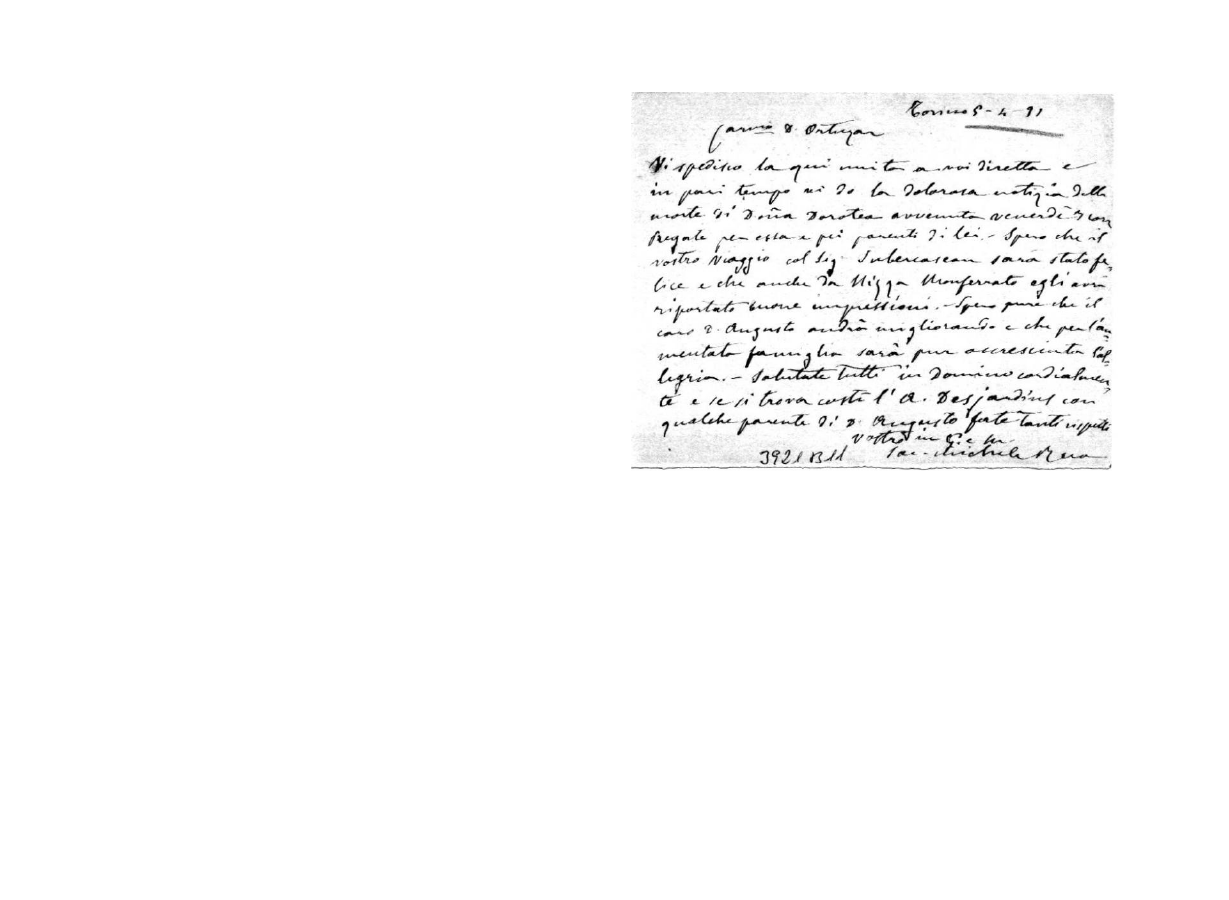 Torino 5-4-91
Carmo D. Ortuzar
Vi spedisco la qui unita a voi diretta e
in pari tempo vi do la dolorosa notizia della
morte di Doña Dorotea avvenuta venerdì
Pregate per essa e pei parenti di lei. - Spero che il
vostro viaggio col Sig. Subercaseau sarà stato fe,
lice e che anche da Nizza Monferrato egli avrà
riportato buone impressioni. - Spero pure che il
caro D. Augusto andrà migliorando e che per l'au,
mentata famiglia sarà pur accresciuta l'al,
legria. - Salutate tutti in Domino cordialmen,
te e se si trova costì l'A. Desjardins con
qualche parente di D. Augusto fate tanti rispetti
Vostro in G. e M.
Sac. Michele Rua
3921 B11